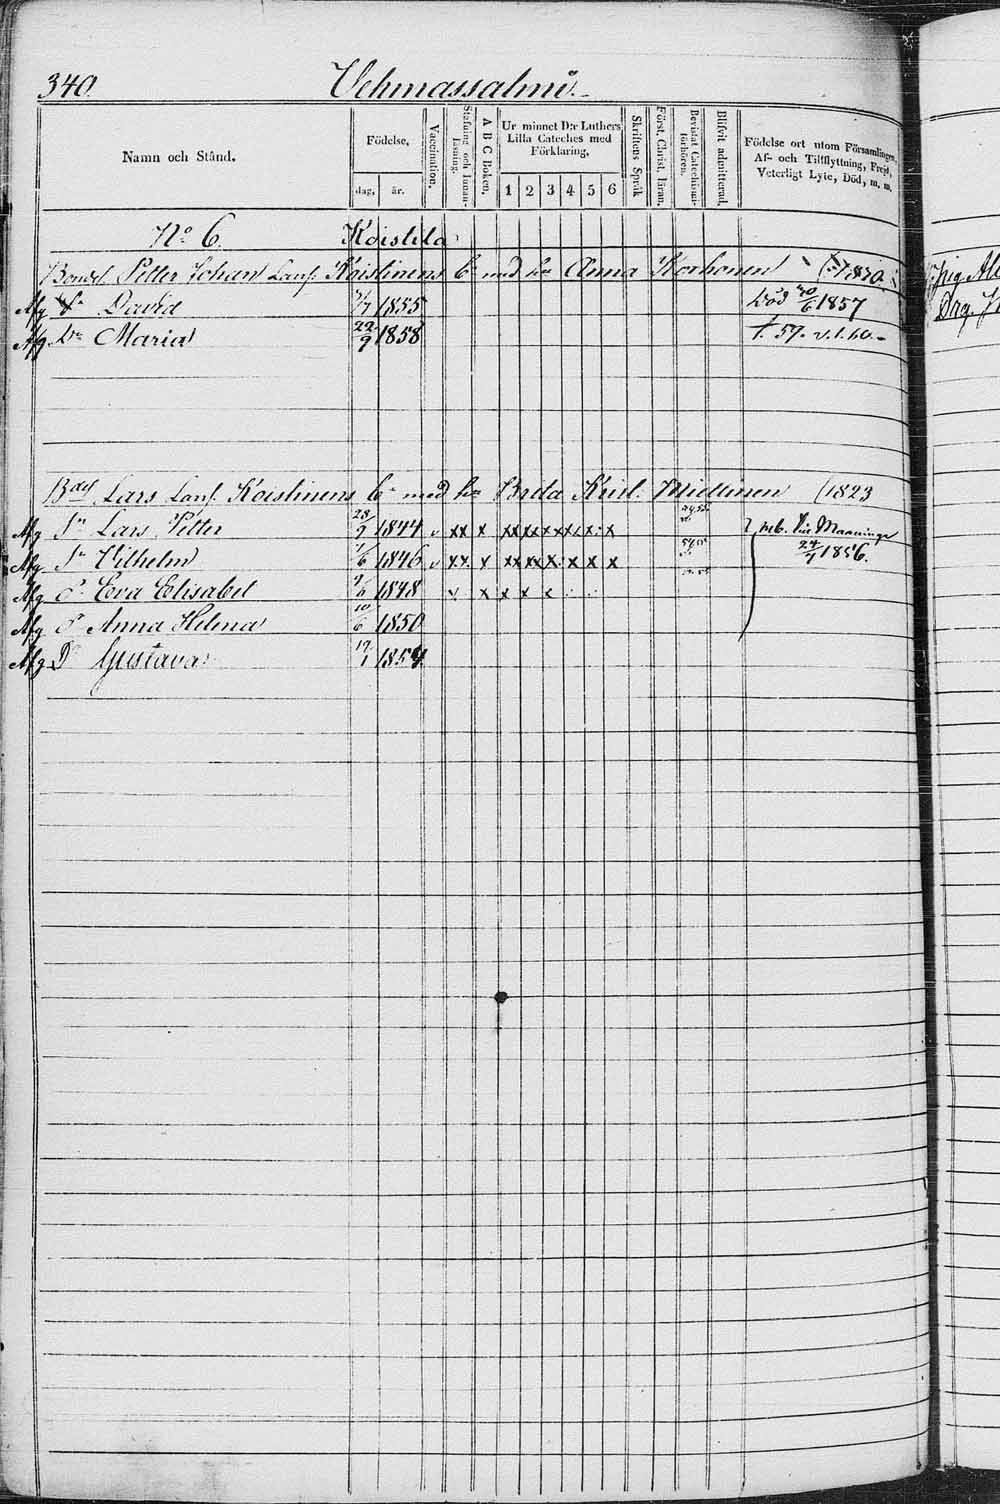 340.
Vehmassalmi.
Namn och Stånd.
Födelse,
dag, år.
Vaccination.
Stafning och Innan-läsning.
A B C Boken.
Ur minnet D:r Luthers Lilla Cateches med Förklaring,
1 2 3 4 5 6
Skriftens Språk
Först. Christ. läran.
Bevistat Catechismi-förhören.
Blifvit admitterad.
Födelse ort utom Församlingen, Af- och Tillflyttning, Frejd, Veterligt Lyte, Död, m. m.
No 6. Koistila
Bonden Petter Johan Larss. Koistinens b med hu Anna Korhonen 1830.
Afg Sn David 7 1855 Död 20/6 1857
Afg Dr Maria 22/9 1858 f. 59. v. l. 60.
Bdes Lars Larss. Koistinens b med hu Breta Krist. Miettinen (1823
Afg Sn Lars Petter 28/9 1844 v xx x xx xx x x x x
Afg Sn Vilhelm 1/6 1846 v x x x xx xx x x x x
Afg D Eva Elisabet 9/6 1848 v x x x x
Afg D Anna Helena 10/6 1850
Afg D Gustava 19/1 1854
m b. Maaninga
24/7 1856.